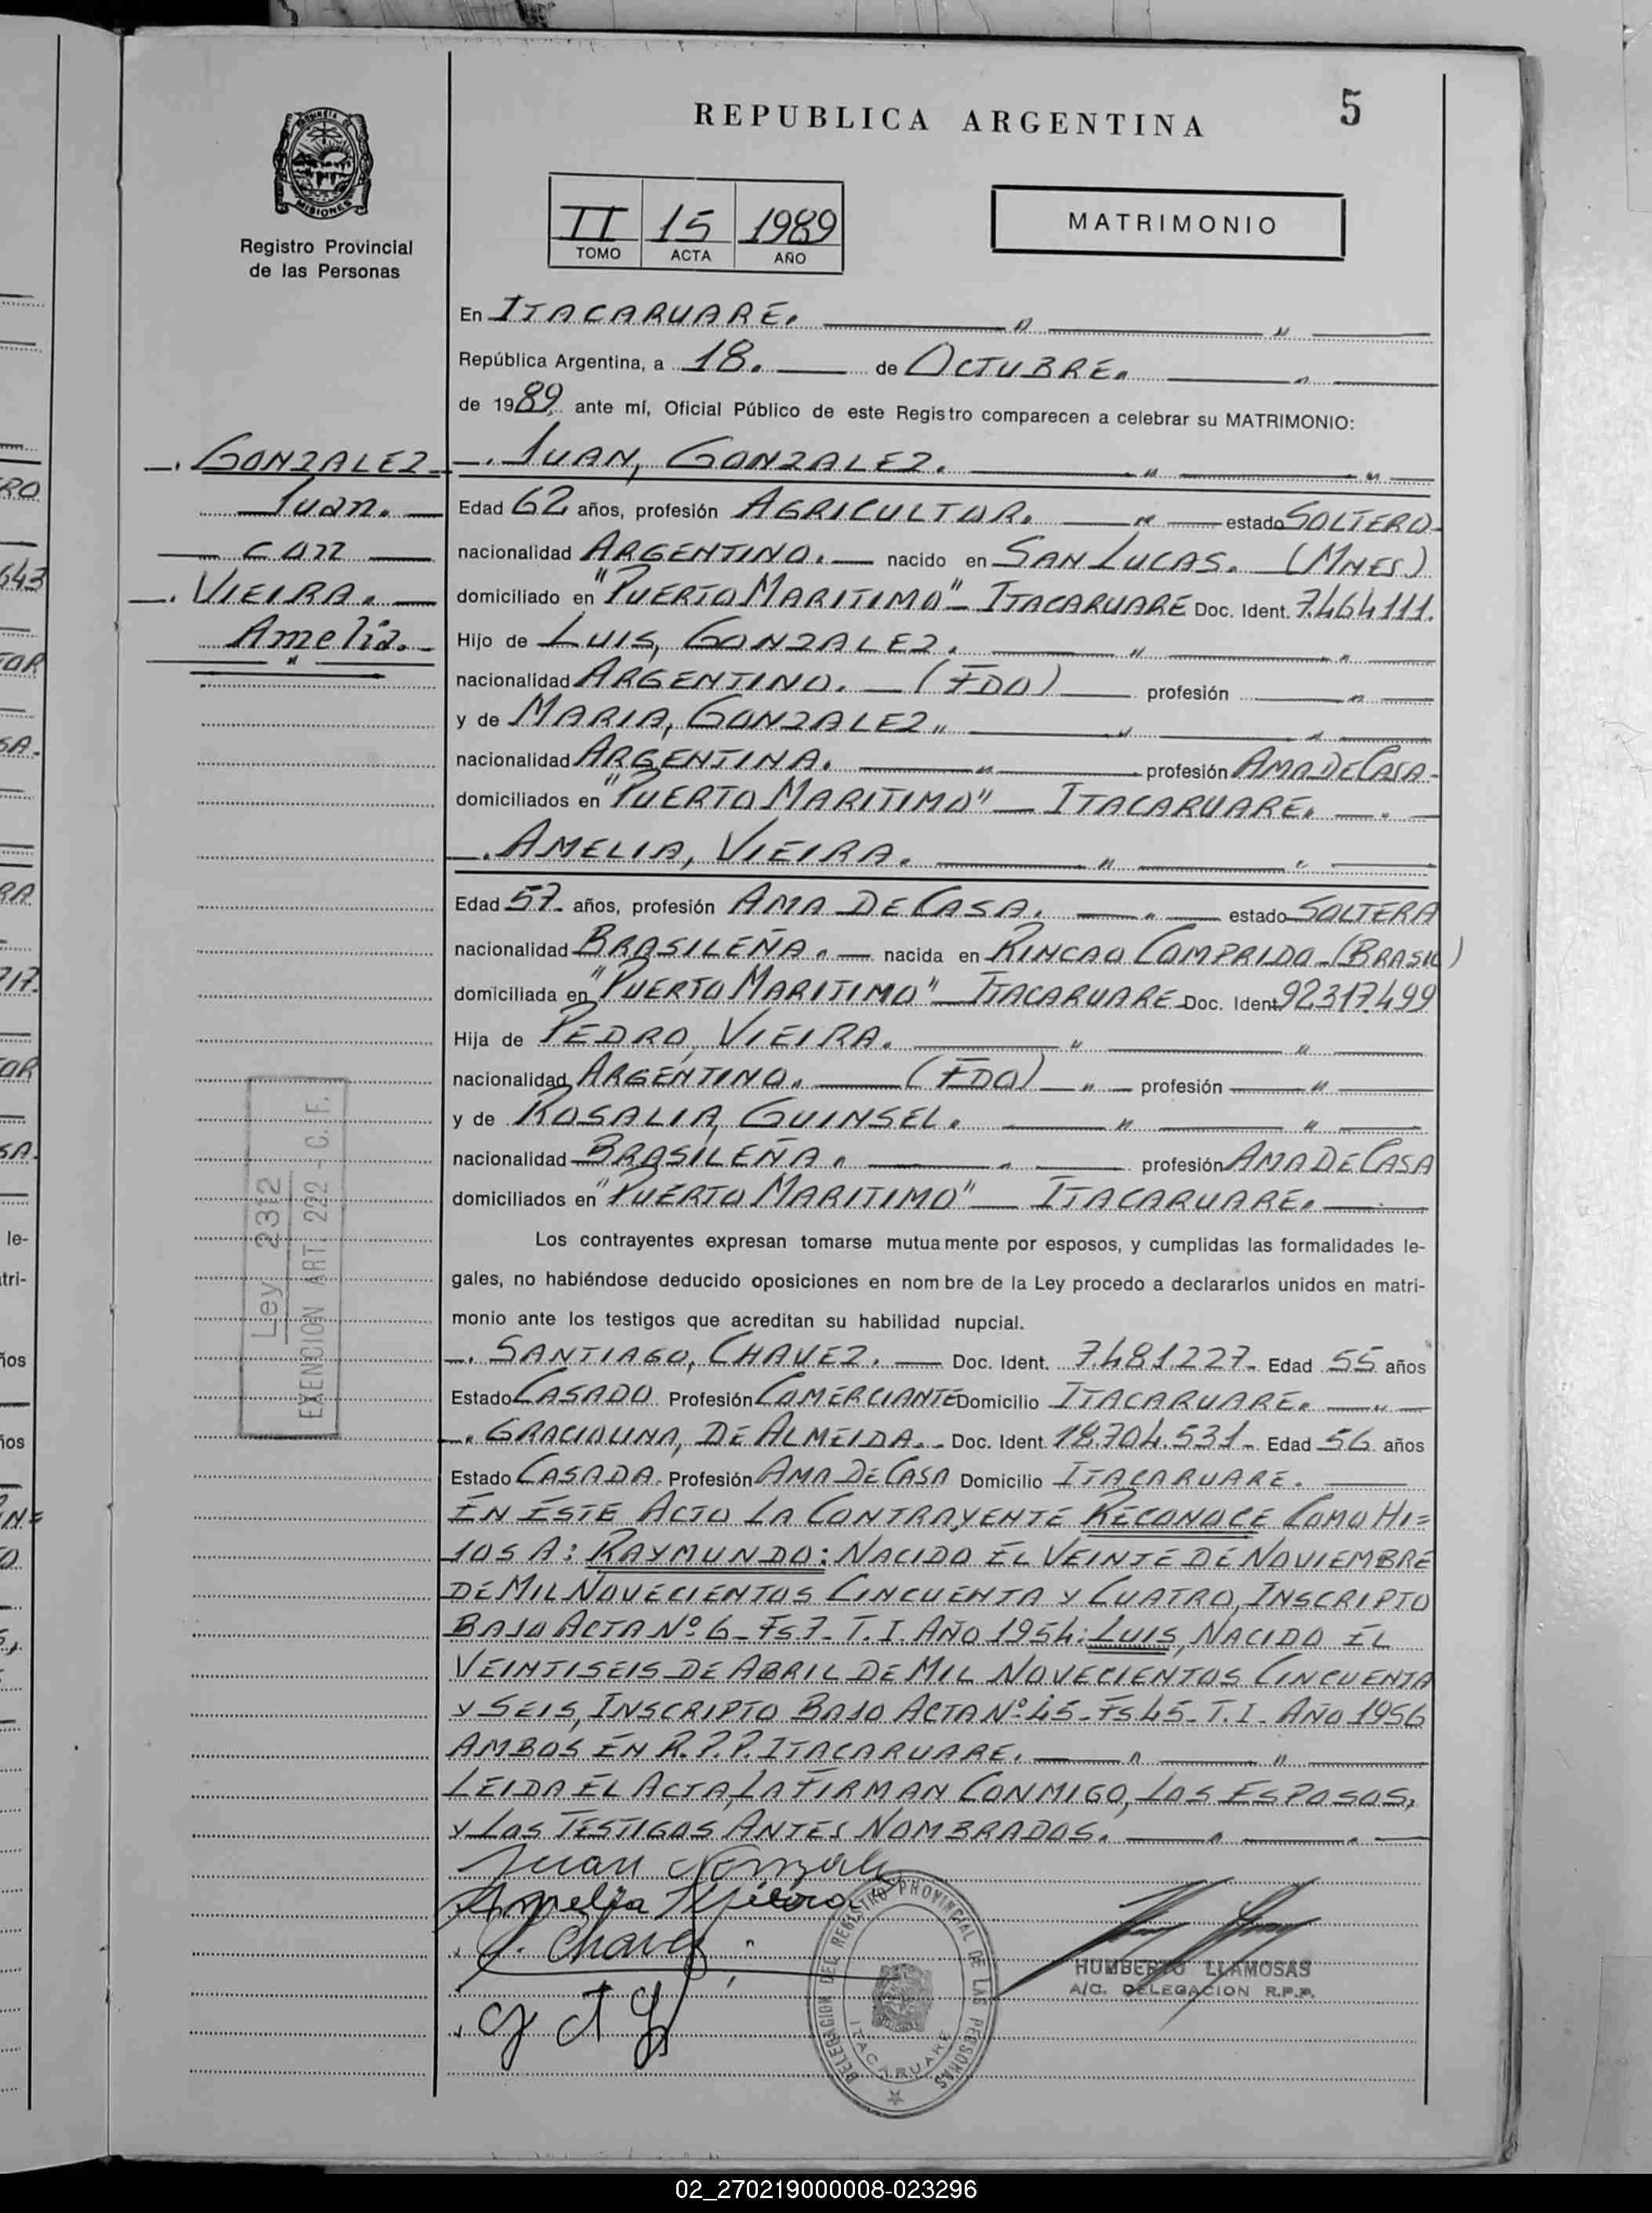 REPUBLICA ARGENTINA
5
PROVINCIA DE
MISIONES
Registro Provincial
de las Personas
II 15 1989
TOMO ACTA AÑO
MATRIMONIO
En ITACARUARE.
República Argentina, a 18. de OCTUBRE.
de 1989 ante mí, Oficial Público de este Registro comparecen a celebrar su MATRIMONIO:
GONZALEZ
Juan.
con
VIEIRA.
Amelia.
JUAN, GONZALEZ.
Edad 62 años, profesión AGRICULTOR. estado SOLTERO
nacionalidad ARGENTINO. nacido en SAN LUCAS. (MNES)
domiciliado en "PUERTO MARITIMO" - ITACARUARE Doc. Ident. 7.464.111.
Hijo de LUIS, GONZALEZ.
nacionalidad ARGENTINO. (FDO) profesión
y de MARIA, GONZALEZ
nacionalidad ARGENTINA. profesión AMA DE CASA
domiciliados en "PUERTO MARITIMO" - ITACARUARE.
AMELIA, VIEIRA.
Edad 57 años, profesión AMA DE CASA. estado SOLTERA
nacionalidad BRASILEÑA. nacida en RINCAO COMPRIDO-(BRASIL)
domiciliada en "PUERTO MARITIMO" - ITACARUARE Doc. Ident 92.317.499
Hija de PEDRO, VIEIRA.
nacionalidad ARGENTINO. (FDO) profesión
y de ROSALIA, GUINSEL.
nacionalidad BRASILEÑA. profesión AMA DE CASA
domiciliados en "PUERTO MARITIMO" - ITACARUARE.
Los contrayentes expresan tomarse mutuamente por esposos, y cumplidas las formalidades le-
gales, no habiéndose deducido oposiciones en nombre de la Ley procedo a declararlos unidos en matri-
monio ante los testigos que acreditan su habilidad nupcial.
SANTIAGO, CHAVEZ. Doc. Ident. 7.481.227- Edad 55 años
Estado CASADO Profesión COMERCIANTE Domicilio ITACARUARE.
GRACIOLINA, DE ALMEIDA. Doc. Ident. 18.704.531- Edad 56 años
Estado CASADA. Profesión AMA DE CASA Domicilio ITACARUARE.
EN ESTE ACTO LA CONTRAYENTE RECONOCE COMO HI=
JOS A: RAYMUNDO: NACIDO EL VEINTE DE NOVIEMBRE
DE MIL NOVECIENTOS CINCUENTA Y CUATRO, INSCRIPTO
BAJO ACTA Nº 6- Fs 7- T. I. AÑO 1954: LUIS, NACIDO EL
VEINTISEIS DE ABRIL DE MIL NOVECIENTOS CINCUENTA
Y SEIS, INSCRIPTO BAJO ACTA Nº 45- Fs 45- T. I- AÑO 1956
AMBOS EN R.P.P. ITACARUARE.
LEIDA EL ACTA, LA FIRMAN CONMIGO, LOS ESPOSOS,
Y LOS TESTIGOS ANTES NOMBRADOS.
Ley 2382
EXENCION ART. 222 - C. F.
Juan Gonzalez
Amelia Vieira
S. Chavez
DELEGACION DEL REGISTRO PROVINCIAL DE LAS PERSONAS
ITACARUARE
HUMBERTO LLAMOSAS
A/C. DELEGACION R.P.P.
RO
643
TOR
SA.
RA
717.
TOR
SA.
le-
tri-
ños
ños
02_270219000008-023296